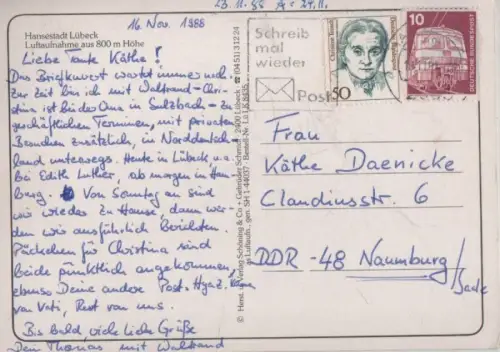 23.11.88 A= 27.11.
16. Nov. 1988
Hansestadt Lübeck
Luftaufnahme aus 800 m Höhe
Liebe Tante Käthe!
Das Briefkuvert wartet immer noch.
Zur Zeit bin ich mit Waltraud - Chri-
stina ist bei der Oma in Sulzbach - zu
geschäftlichen Terminen, mit privaten
Besuchen zusätzlich, in Norddeutsch-
land unterwegs. Heute in Lübeck u. a.
bei Edith Luther, ab morgen in Ham-
burg. Von Sonntag an sind
wir wieder zu Hause, dann wer-
den wir ausführlich berichten.
Päckchen für Christina sind
beide pünktlich angekommen,
ebenso Deine andere Post.
von Vati, Rest von uns.
Bis bald, viele liebe Grüße
Dein Thomas mit Waltraud
Schreib
mal
wieder
Post
50
10
DEUTSCHE BUNDESPOST
Frau
Käthe Daenicke
Claudiusstr. 6
DDR - 48 Naumburg/
Saale
Verlag Schöning & Co + Gebrüder Schmidt 2400 Lübeck ☎ (0451) 31224